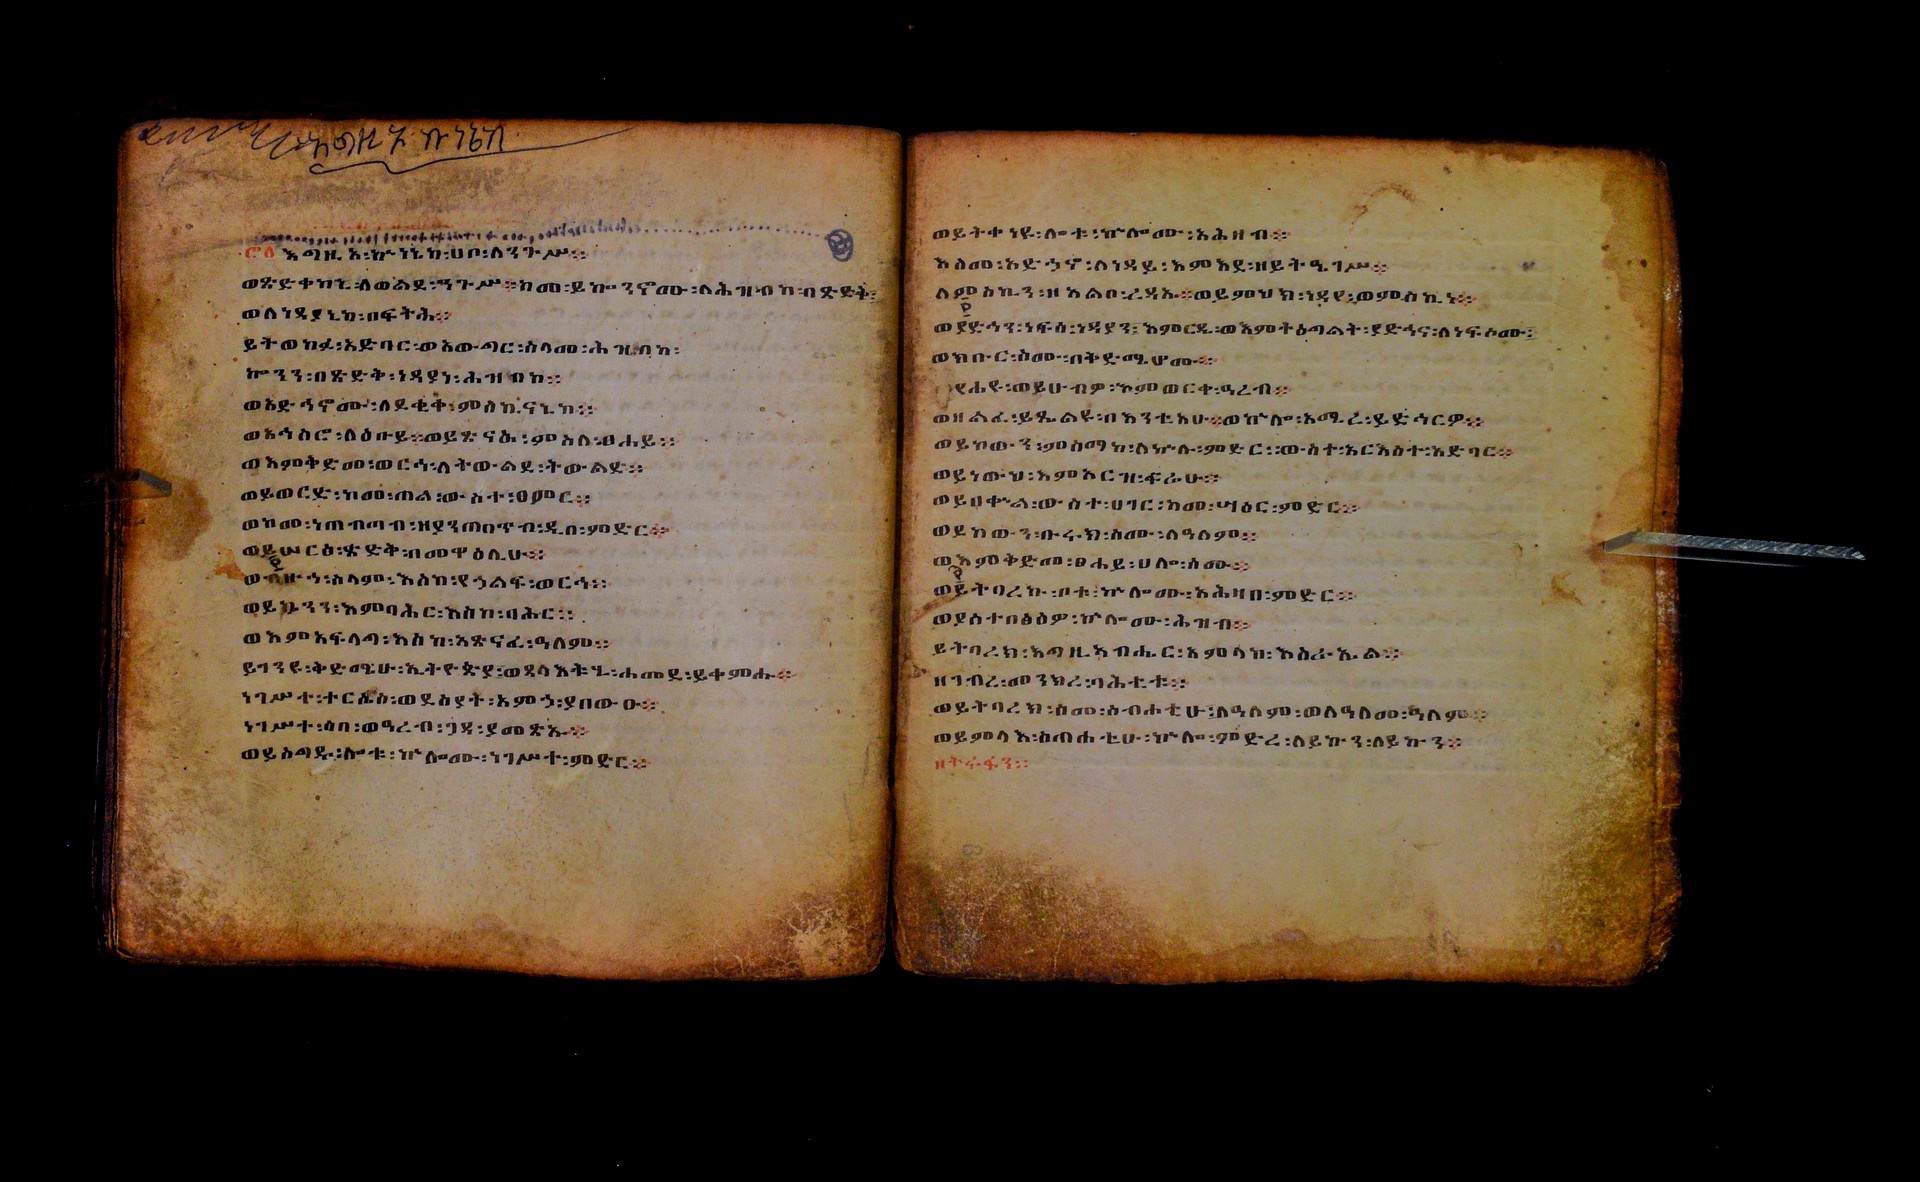 ፸፩ እግዚኦ፡ኵነኔከ፡ሀቦ፡ለንጉሥ።
ወጽድቀከኒ፡ለወልደ፡ንጉሥ።ከመ፡ይኰንኖሙ፡ለሕዝብከ፡በጽድቅ፡
ወለነዳያኒከ፡በፍትሕ።
ይትወከፉ፡አድባር፡ወአውግር፡ሰላመ፡ሕዝብከ፡
ኰንን፡በጽድቅ፡ነዳያነ፡ሕዝብከ።
ወአድኅኖሙ፡ለደቂቀ፡ምስኪናኒከ።
ወአኅስሮ፡ለዕቡይ።ወይጽናሕ፡ምስለ፡ፀሐይ።
ወእምቅድመ፡ወርኅ፡ለትውልደ፡ትውልድ።
ወይወርድ፡ከመ፡ጠል፡ውስተ፡ፀምር።
ወከመ፡ነጠብጣብ፡ዘያንጠበጥብ፡ዲበ፡ምድር።
ወይሠርፅ፡ጽድቅ፡በመዋዕሊሁ።
ወብዙኅ፡ሰላም፡እስከ፡የኀልፍ፡ወርኅ።
ወይኴንን፡እምባሕር፡እስከ፡ባሕር።
ወእምአፍላግ፡እስከ፡አጽናፈ፡ዓለም።
ይገንዩ፡ቅድሜሁ፡ኢትዮጵያ፡ወጸላእቱሂ፡ሐመደ፡ይቀምሑ።
ነገሥተ፡ተርሴስ፡ወደሰያት፡አምኃ፡ያበውዑ።
ነገሥተ፡ሳባ፡ወዓረብ፡ጋዳ፡ያመጽኡ።
ወይሰግዱ፡ሎቱ፡ኵሎሙ፡ነገሥተ፡ምድር።
ወይትቀነዩ፡ሎቱ፡ኵሎሙ፡አሕዛብ።
እስመ፡አድኀኖ፡ለነዳይ፡እምእደ፡ዘይትዔገሎ።
ለምስኪን፡ዘአልቦ፡ረዳኢ።ወይምህክ፡ነዳየ፡ወምስኪነ።
ወያድኅን፡ነፍሰ፡ነዳያን፡እምርዴ፡ወእምትዕግልት፡ያድኅና፡ለነፍሶሙ፡
ወክቡር፡ስሙ፡በቅድሜሆሙ።
የሐዩ፡ወይሁብዎ፡እምወርቀ፡ዓረብ።
ወዘልፈ፡ይጼልዩ፡በእንቲአሁ።ወኵሎ፡አሚረ፡ይድኅርዎ።
ወይከውን፡ምስማከ፡ለኵሉ፡ምድር፡ውስተ፡አርእስተ፡አድባር።
ወይነውኅ፡እምአርዝ፡ፍሬሁ።
ወይሠቁል፡ውስተ፡ሀገር፡ከመ፡ሣዕር፡ምድር።
ወይከውን፡ቡሩክ፡ስሙ፡ለዓለም።
ወእምቅድመ፡ፀሐይ፡ሀሎ፡ስሙ።
ወይትባረኩ፡ቦቱ፡ኵሎሙ፡አሕዛበ፡ምድር።
ወያስተበፅዕዎ፡ኵሎሙ፡ሕዝብ።
ይትባረክ፡እግዚአብሔር፡አምላከ፡እስራኤል።
ዘገብረ፡መንክረ፡ባሕቲቱ።
ወይትባረክ፡ስመ፡ስብሐቲሁ፡ለዓለም፡ወለዓለመ፡ዓለም።
ወይምላእ፡ስብሐቲሁ፡ኵሎ፡ምድረ፡ለይኩን፡ለይኩን።